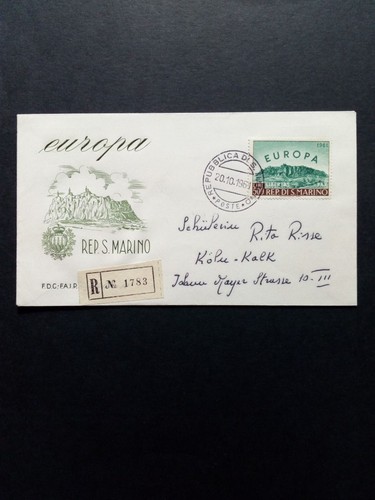 europa
1961
EUROPA
REPUBBLICA DI S.
20.10.1961
POSTE
LIBERTAS
REP. DI S. MARINO
Schülerin Rita Risse
REP. S. MARINO
Köln-Kalk
F.D.C. F.A.I.P.
R No 1783
Johann Mayer Strasse 10-III